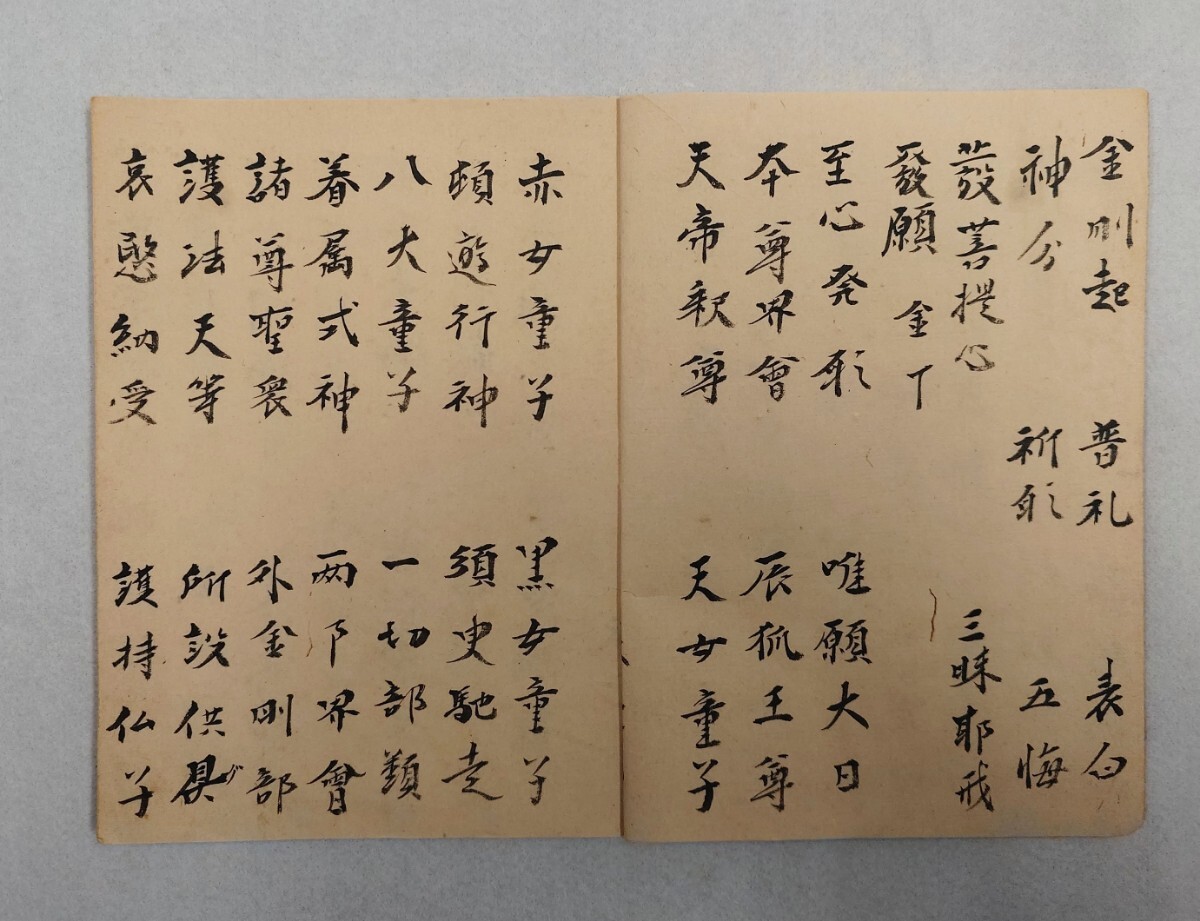 金剛起 普礼 表白
神分 祈願 五悔
發菩提心 三昧耶戒
發願 金丁
至心発願 唯願大日
本尊界會 辰狐王尊
天帝釈尊 天女童子
赤女童子 黒女童子
頓遊行神 須臾馳走
八大童子 一切部類
眷属式神 两部界會
諸尊聖衆 外金剛部
護法天等 所設供具
哀愍納受 護持仏子